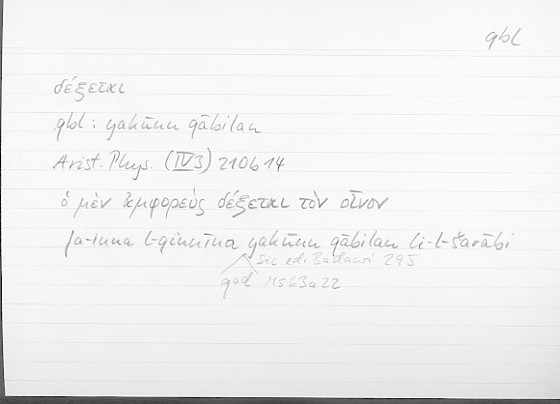 qbl
δέξεται
qbl : yakūnu qābilan
Arist. Phys. (IV3) 210b14
ὁ μὲν ἀμφορεὺς δέξεται τὸν οἶνον
fa-inna l-qinnīna yakūnu qābilan li-l-šarābi
sic ed. Badawi 295
qad MS 63a22